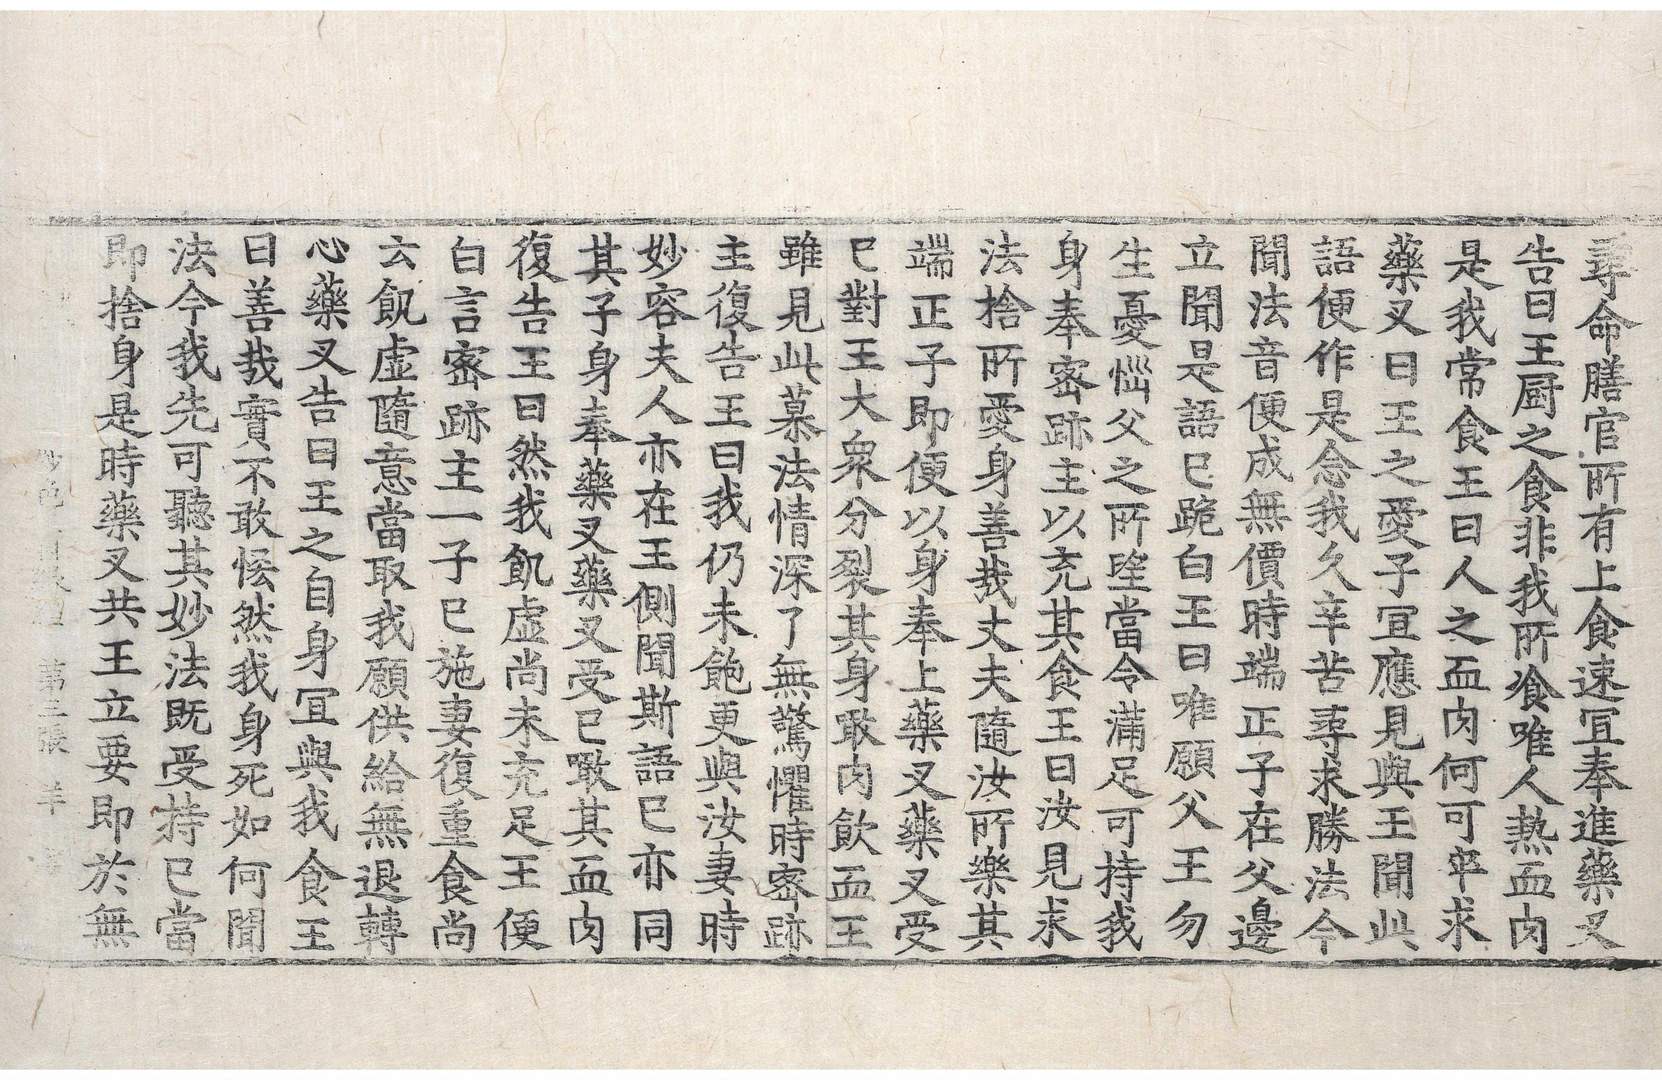 尋命膳官所有上食速冝奉進藥叉
告曰王厨之食非我所飡唯人熱血肉
是我常食王曰人之血肉何可卒求
藥叉曰王之愛子冝應見與王聞此
語便作是念我久辛苦尋求勝法今
聞法音便成無價時端正子在父邊
立聞是語已跪白王曰唯願父王勿
生憂惱父之所望當令滿足可持我
身奉密跡主以充其食王曰汝見求
法捨所愛身善哉丈夫隨汝所樂其
端正子即便以身奉上藥叉藥叉受
已對王大衆分裂其身噉肉飲血王
雖見此慕法情深了無驚懼時密跡
主復告王曰我仍未飽更與汝妻時
妙容夫人亦在王側聞斯語已亦同
其子身奉藥叉藥叉受已噉其血肉
復告王曰然我飢虛尚未充足王便
白言密跡主一子已施妻復重食尚
云飢虛隨意當取我願供給無退轉
心藥叉告曰王之自身冝與我食王
曰善哉實不敢恡然我身死如何聞
法今我先可聽其妙法既受持已當
即捨身是時藥叉共王立要即於無
妙色 因緣經 第三張 羊